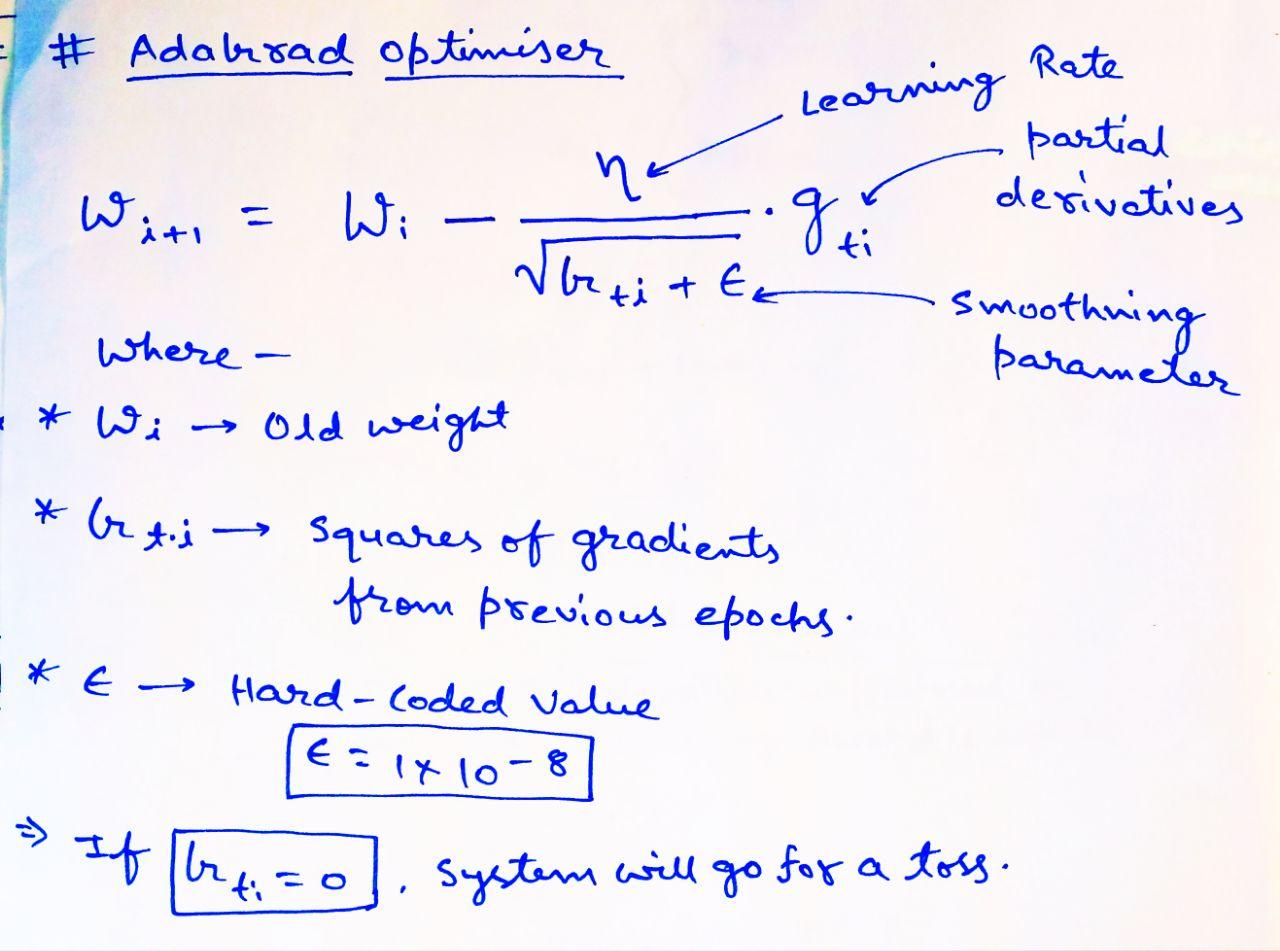 # Adagrad optimiser
Learning Rate
partial
derivatives
W i+1 = Wi − η / √(G ti + ϵ) · g ti
Smoothning
parameter
Where −
* Wi → Old weight
* G t.i → Squares of gradients
from previous epochs.
* ϵ → Hard-Coded Value
ϵ = 1 × 10 − 8
⇒ If G ti = 0, system will go for a toss.